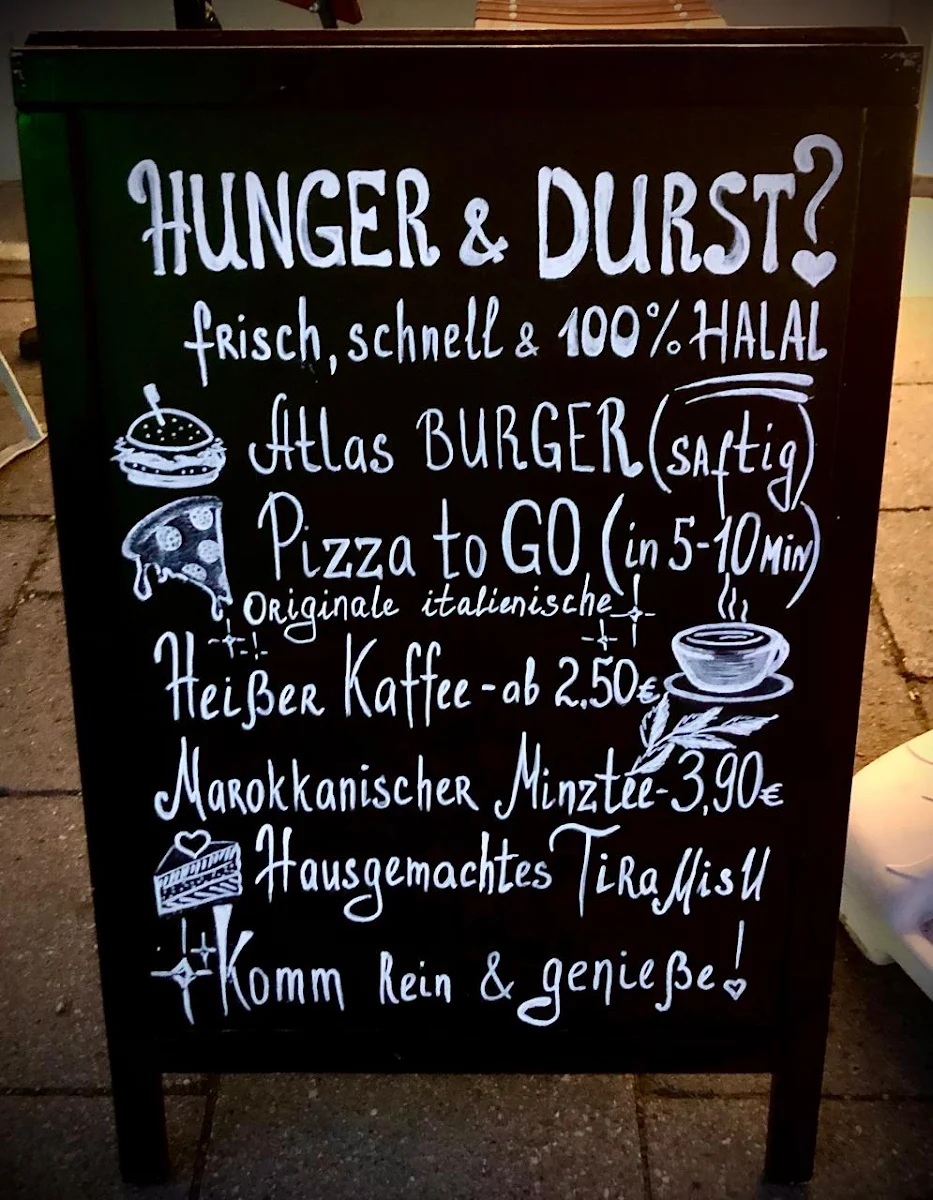 HUNGER & DURST?
frisch, schnell & 100% HALAL
Atlas BURGER (saftig)
Pizza to GO (in 5-10 Min)
Originale italienische
Heißer Kaffee - ab 2,50€
Marokkanischer Minztee - 3,90€
Hausgemachtes TiRaMisU
Komm Rein & genieße!